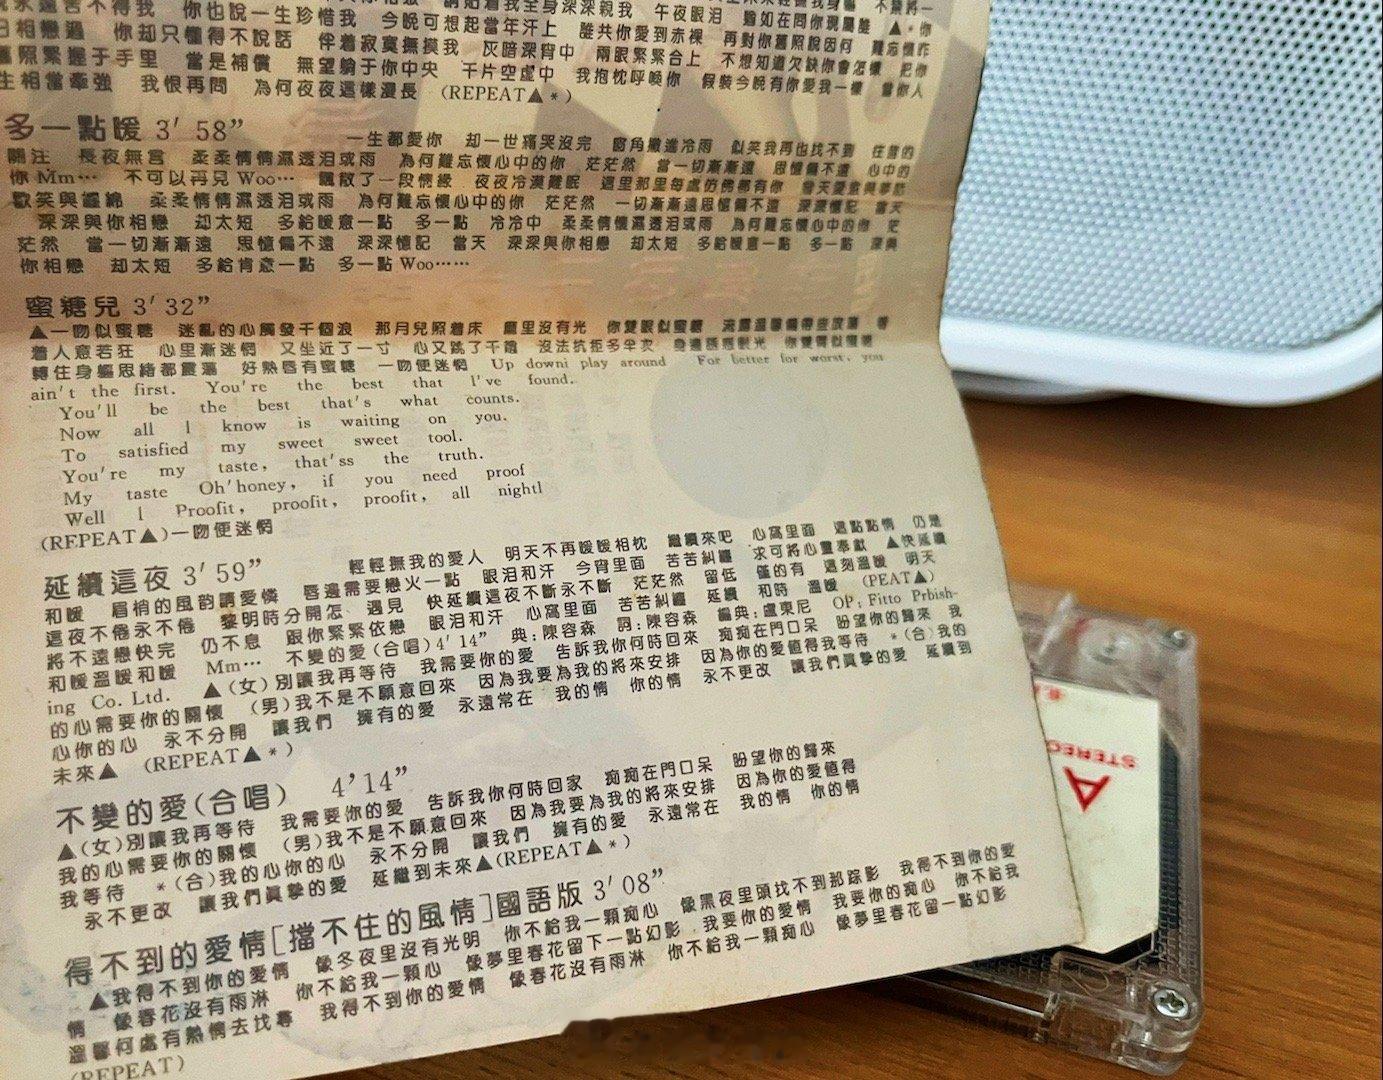 你也說一生珍惜我 今晚可想起當年汗上 誰共你愛到赤裸 再對你舊照說因何 難忘懷昨
日相戀過 你却只懂得不說話 伴着寂寞撫摸我 灰暗深宵中 兩眼緊緊合上 不想知道欠缺你會怎樣 把你
舊照緊握于手里 當是補償 無望躺于你中央 千片空虛中 我抱枕呼喚你 假裝今晚有你愛我一樣 當你人
生相當牽強 我恨再問 為何夜夜這樣漫長 (REPEAT▲*)
多一點暖 3′58”
一生都愛你 却一世痛哭沒完 窗角撇進冷雨 似笑我再也找不到 往昔的
關注 長夜無言 柔柔情情濕透泪或雨 為何難忘懷心中的你 茫茫然 當一切漸漸遠 思憶偏不遠 心中的
你Mm… 不可以再見Woo… 飄散了一段情緣 夜夜冷漠難眠 這里那里每處仿佛都有你
歡笑與纏綿 柔柔情情濕透泪或雨 為何難忘懷心中的你 茫茫然 一切漸漸遠思憶偏不遠 深深憶記 當天
深深與你相戀 却太短 多給暖意一點 多一點 冷冷中 柔柔情懷濕透泪或雨 為何難忘懷心中的你 茫
茫然 當一切漸漸遠 思憶偏不遠 深深憶記 當天 深深與你相戀 却太短 多給暖意一點 多一點 深與
你相戀 却太短 多給肯意一點 多一點Woo……
蜜糖兒 3′32”
▲一吻似蜜糖 迷亂的心觸發千個浪 那月兒照着床 壓里沒有光 你雙眼似蜜糖 流露溫馨
着人意若狂 心里漸迷惘 又坐近了一寸 心又跳了千趟 沒法抗拒多半次
轉住身軀思緒都震蕩 好熱唇有蜜糖 一吻便迷惘 Up downi play around For better for worst, you
ain't the first. You're the best that I've found.
You'll be the best that's what counts.
Now all I know is waiting on you.
To satisfied my sweet sweet tool.
You're my taste, that'ss the truth.
My taste Oh'honey, if you need proof
Well I Proofit, proofit, proofit, all nightl
(REPEAT▲)一吻便迷惘
延續這夜 3′59”
輕輕撫我的愛人 明天不再暖暖相枕 繼續來吧 心窩里面 這點點情 仍是
和暖 眉梢的風韵請愛憐 唇邊需要戀火一點 眼泪和汗 今宵里面 苦苦糾纏 求可將心靈奉獻 ▲快延續
這夜不倦永不倦 黎明時分開怎、遇見 快延續這夜不斷永不斷 茫茫然 留低 僅的有 這刻溫暖 明天
將不遠戀快完 仍不息 跟你緊緊依戀 眼泪和汗 心窩里面 苦苦糾纏 延續 和時 溫暖 (PEAT▲)
和暖溫暖和暖 Mm… 不變的愛(合唱)4′14” 典:陳容森 詞:陳容森 編典:盧東尼 OP:Fitto Prbish-
ing Co. Ltd. ▲(女)別讓我再等待 我需要你的愛 告訴我你何時回來 痴痴在門口呆 盼望你的歸來 我
的心需要你的關懷 (男)我不是不願意回來 因為我要為我的將來安排 因為你的愛值得我等待 *(合)我的
心你的心 永不分開 讓我們 擁有的愛 永遠常在 我的情 你的情 永不更改 讓我們眞摯的愛 延續到
未來▲ (REPEAT▲*)
不變的愛(合唱) 4’14”
▲(女)別讓我再等待 我需要你的愛 告訴我你何時回家 痴痴在門口呆 盼望你的歸來
我的心需要你的關懷 (男)我不是不願意回來 因為我要為我的將來安排 因為你的愛值得
我等待 *(合)我的心你的心 永不分開 讓我們 擁有的愛 永遠常在 我的情 你的情
永不更改 讓我們眞摯的愛 延繼到未來▲(REPEAT▲*)
得不到的愛情[擋不住的風情]國語版 3′08”
▲我得不到你的愛情 像冬夜里沒有光明 你不給我一顆痴心 像黑夜里頭找不到那踪影 我得不到你的愛
情 像春花沒有雨淋 你不給我一顆心 像夢里春花留下一點幻影 我要你的愛情 我要你的痴心 你不給我
溫馨何處有熱情去找尋 我得不到你的愛情 像春花沒有雨淋 你不給我一顆痴心 像夢里春花留一點幻影
(REPEAT)
A
STEREO